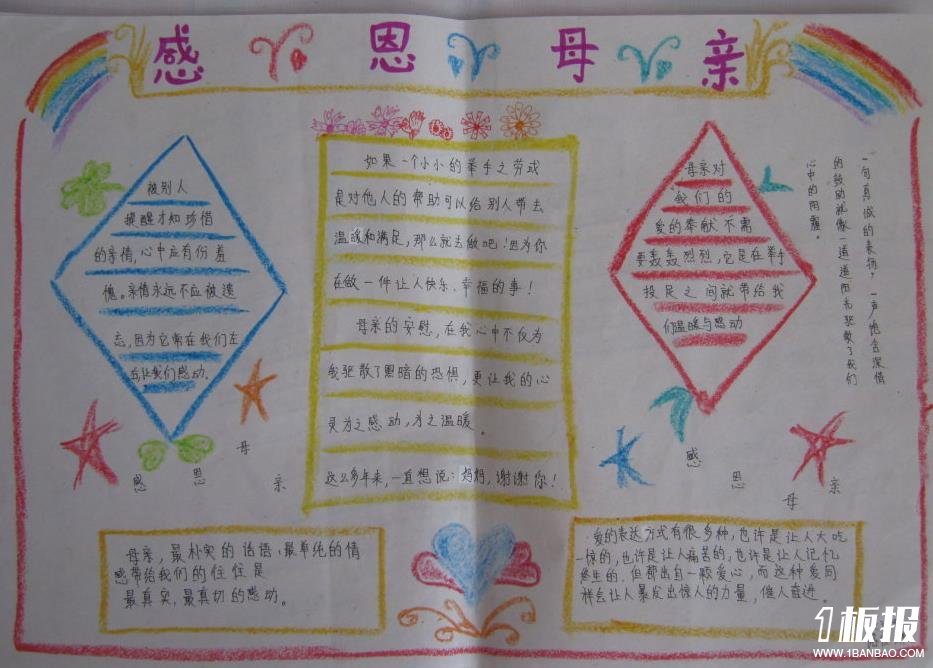 感恩母亲
被别人
提醒才知珍惜
的亲情，心中应有份羞
愧。亲情永远不应被遗
忘，因为它常在我们左
右，让我们感动。
感恩母亲
如果一个小小的举手之劳或
是对他人的帮助可以给别人带去
温暖和满足，那么就去做吧！因为你
在做一件让人快乐、幸福的事！
母亲的安慰，在我心中不仅为
我驱散了黑暗的恐惧，更让我的心
灵为之感动，为之温暖。
这么多年来，一直想说：妈妈，谢谢你！
母亲对
我们的
爱的奉献不需
要轰轰烈烈，它是在举手
投足之间就带给我
们温暖与感动
一句真诚的表扬，一声饱含深情
的鼓励就像一道道阳光驱散了我们
心中的阴霾。
感恩母亲
母亲，最朴实的话语，最单纯的情
感带给我们的往往是
最真实、最真切的感动。
爱的表达方式有很多种，也许是让人大吃
一惊的，也许是让人痛苦的，也许是让人记忆
终生的，但都出自一颗爱心，而这种爱同
样会让人暴发出惊人的力量，催人奋进。
1板报
WWW.1BANBAO.COM